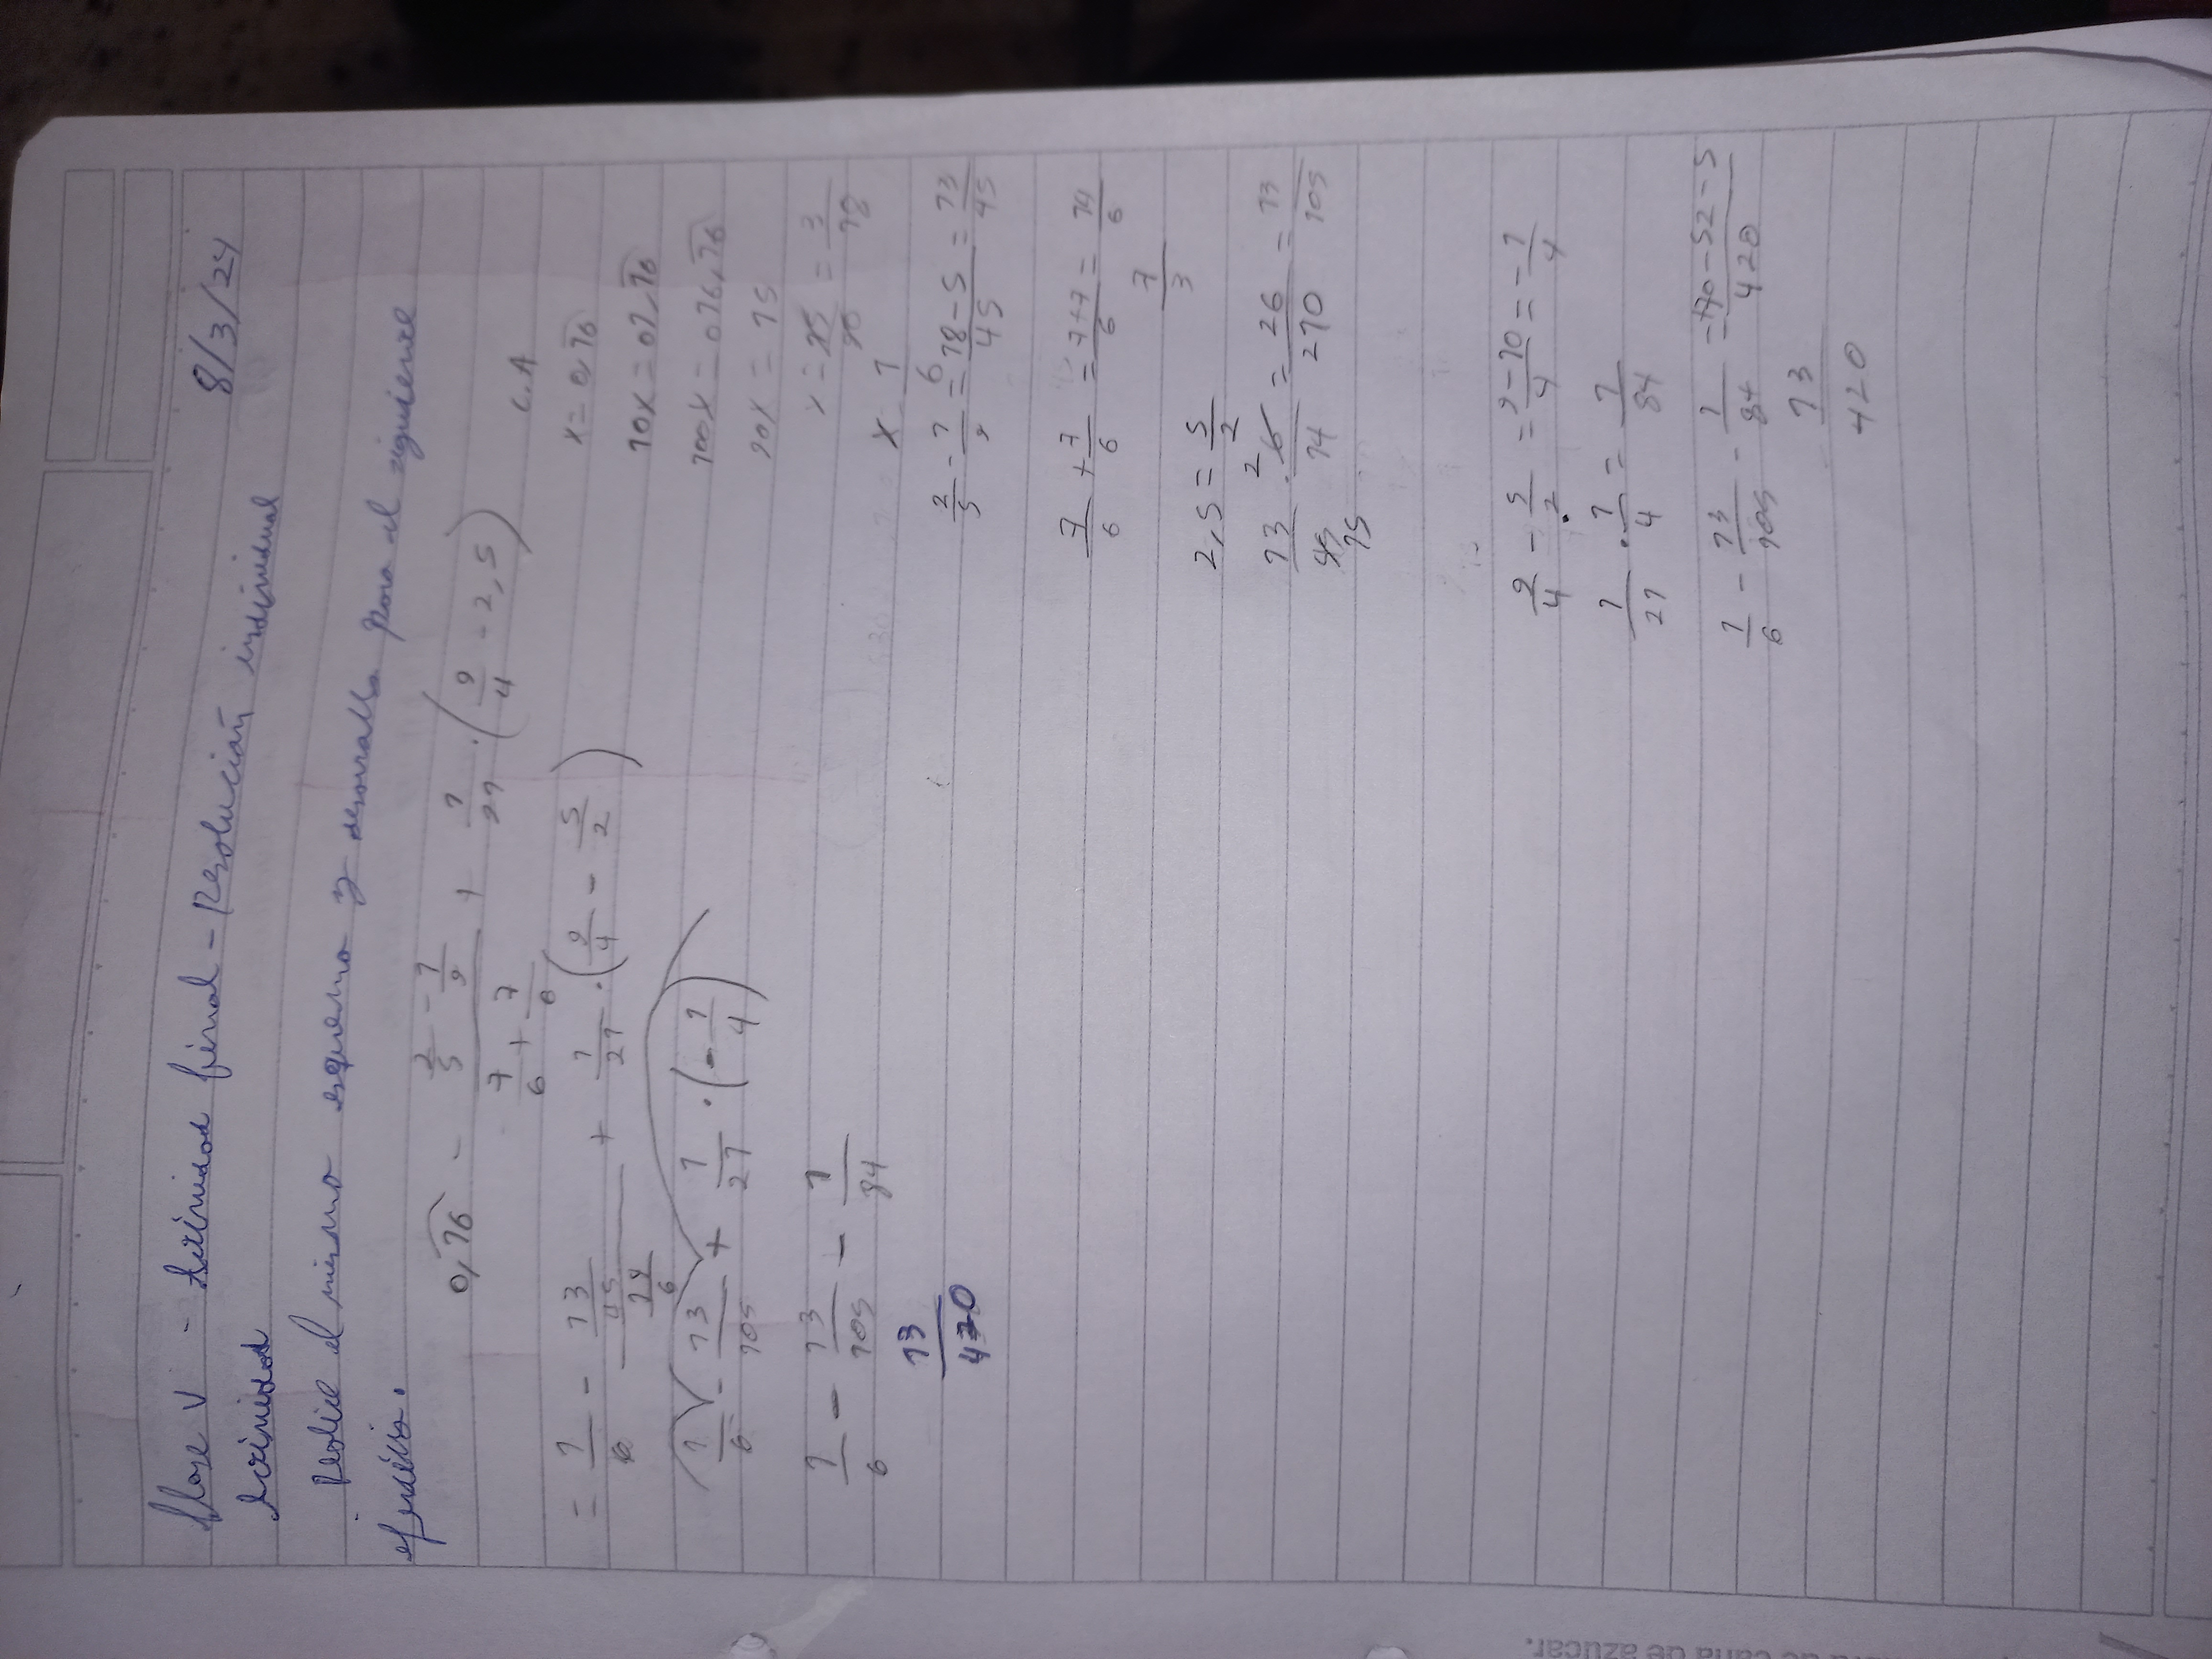 Clase V - Actividad final - Resolución individual 8/3/24
Actividad
Realice el mismo esquema y desarrollo para el siguiente
ejercicio.
0,16 - (2/5 - 1/9)/(7/6 + 7/6) + 1/21 · (9/4 - 2,5)
= 1/6 - (13/45)/(14/6) + 1/21 · (9/4 - 5/2)
1/6 - 13/105 + 1/21 · (-1/4)
1/6 - 13/105 - 1/84
13/420
C.A
x = 0,16
10x = 01,16
100x = 016,16
90x = 15
x = 15/90 = 3/18
x = 1/6
2/5 - 1/9 = 18-5/45 = 13/45
7/6 + 7/6 = 7+7/6 = 14/6
7/3
2,5 = 5/2
13/45 · 6/14 = 26/210 = 13/105
2
15
9/4 - 5/2 = 9-10/4 = -1/4
1/21 · 1/4 = 1/84
1/6 - 13/105 - 1/84 = 70-52-5/420
13/420
de caña de azúcar.